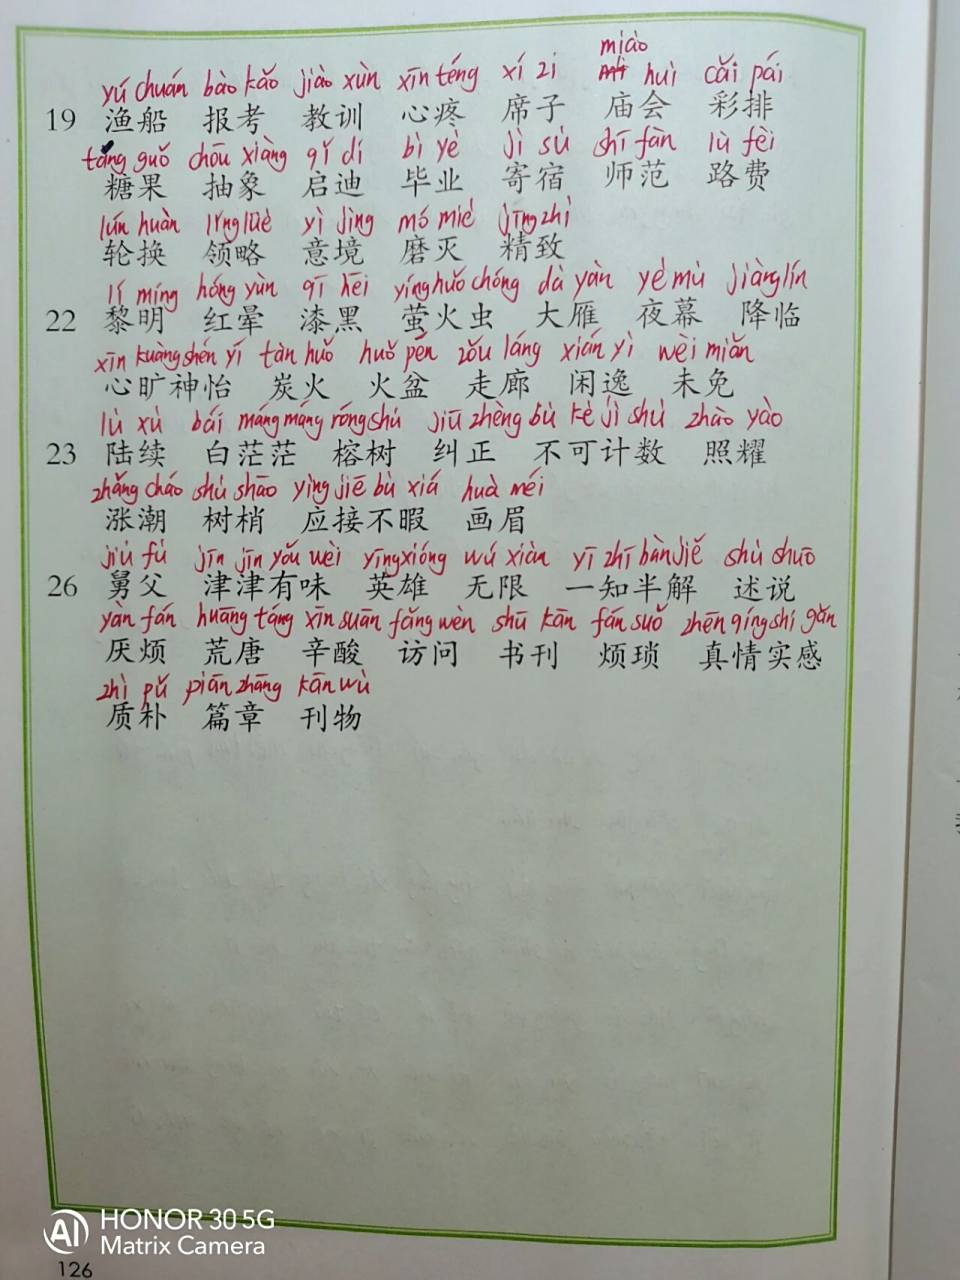 miào
yú chuán bào kǎo jiào xùn xīn téng xí zi huì cǎi pái
19 渔船 报考 教训 心疼 席子 庙会 彩排
táng guǒ chōu xiàng qǐ dí bì yè jì sù shī fàn lù fèi
糖果 抽象 启迪 毕业 寄宿 师范 路费
lún huàn lǐng lüè yì jìng mó miè jīng zhì
轮换 领略 意境 磨灭 精致
lí míng hóng yùn qī hēi yíng huǒ chóng dà yàn yè mù jiàng lín
22 黎明 红晕 漆黑 萤火虫 大雁 夜幕 降临
xīn kuàng shén yí tàn huǒ huǒ pén zǒu láng xián yì wèi miǎn
心旷神怡 炭火 火盆 走廊 闲逸 未免
lù xù bái máng máng róng shù jiū zhèng bù kě jì shù zhào yào
23 陆续 白茫茫 榕树 纠正 不可计数 照耀
zhǎng cháo shù shāo yìng jiē bù xiá huà méi
涨潮 树梢 应接不暇 画眉
jiù fù jīn jīn yǒu wèi yīng xióng wú xiàn yī zhī bàn jiě shù shuō
26 舅父 津津有味 英雄 无限 一知半解 述说
yàn fán huāng táng xīn suān fǎng wèn shū kān fán suǒ zhēn qíng shí gǎn
厌烦 荒唐 辛酸 访问 书刊 烦琐 真情实感
zhì pǔ piān zhāng kān wù
质朴 篇章 刊物
AI HONOR 30 5G
Matrix Camera
126